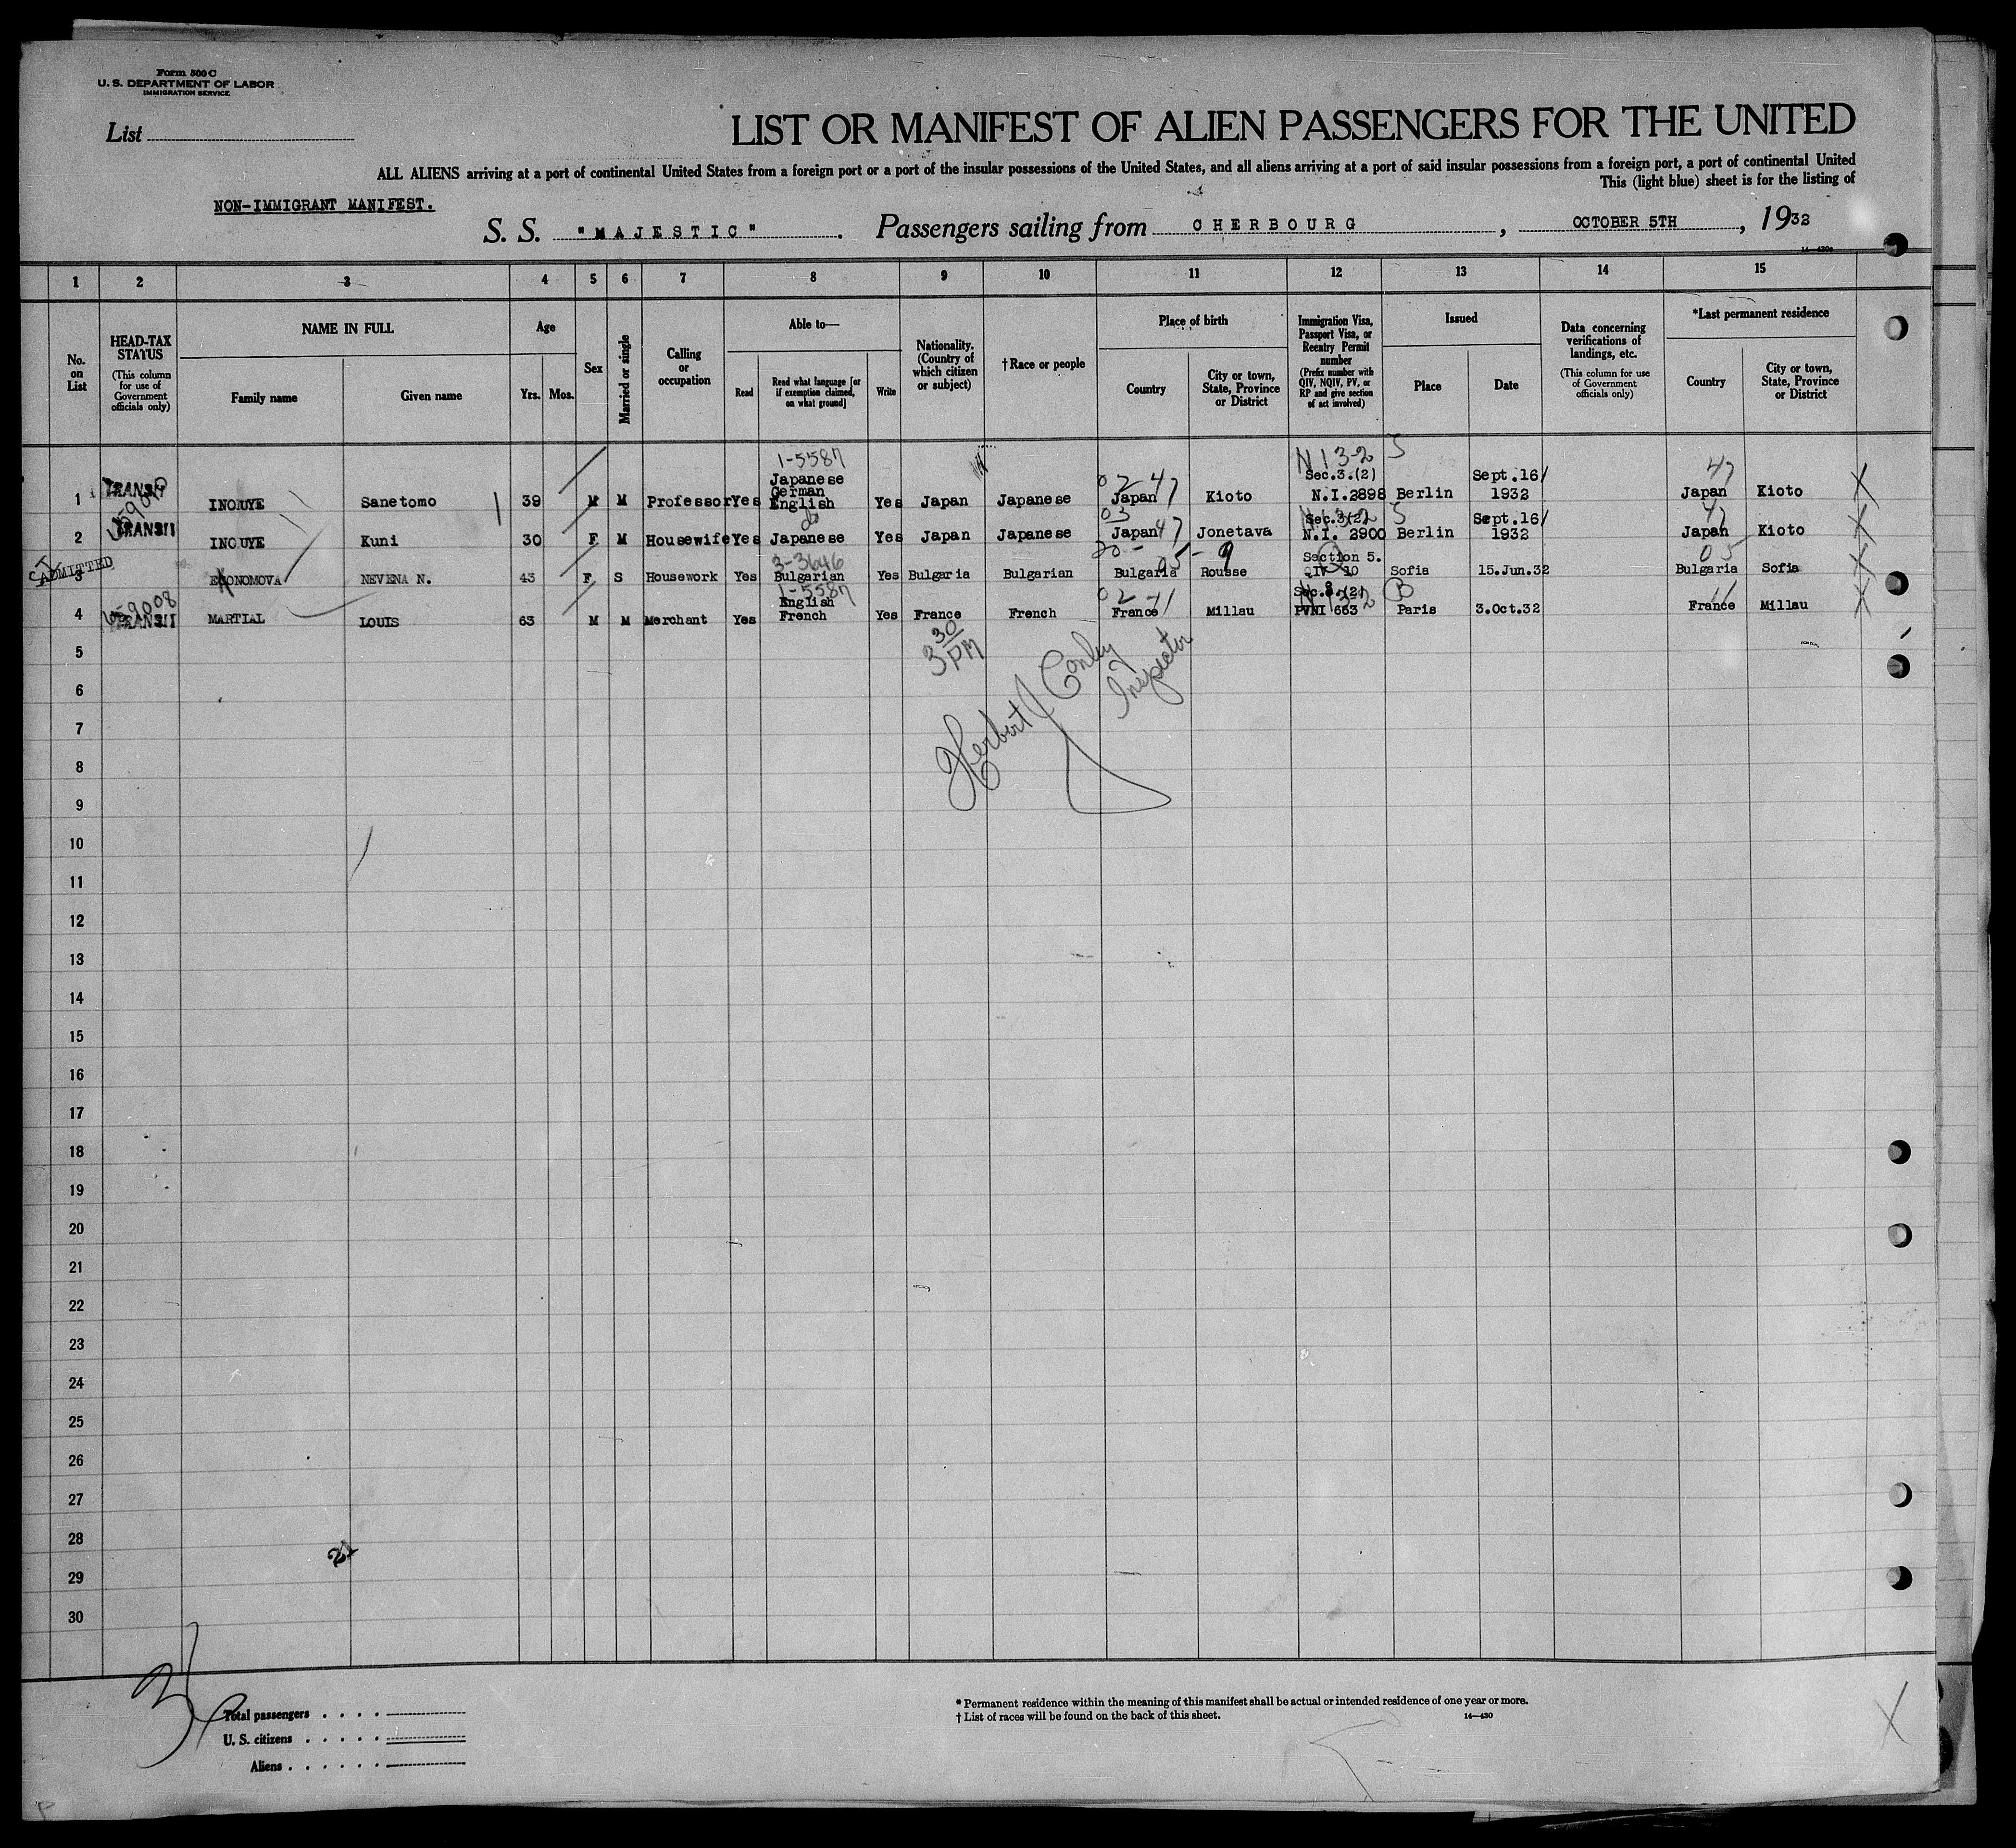 Form 500 C
U. S. DEPARTMENT OF LABOR
IMMIGRATION SERVICE
List
LIST OR MANIFEST OF ALIEN PASSENGERS FOR THE UNITED
ALL ALIENS arriving at a port of continental United States from a foreign port or a port of the insular possessions of the United States, and all aliens arriving at a port of said insular possessions from a foreign port, a port of continental United
This (light blue) sheet is for the listing of
NON-IMMIGRANT MANIFEST.
S. S. "MAJESTIC" Passengers sailing from CHERBOURG, OCTOBER 5TH, 1932
1 2 3 4 5 6 7 8 9 10 11 12 13 14 15
No. on List
HEAD-TAX STATUS (This column for use of Government officials only)
NAME IN FULL
Family name Given name
Age
Yrs. Mos.
Sex
Married or single
Calling or occupation
Able to—
Read
Read what language [or if exemption claimed, on what ground]
Write
Nationality. (Country of which citizen or subject)
† Race or people
Place of birth
Country
City or town, State, Province or District
Immigration Visa, Passport Visa, or Reentry Permit number (Prefix number with QIV, NQIV, PV, or RP and give section of act involved)
Issued
Place Date
Data concerning verifications of landings, etc. (This column for use of Government officials only)
*Last permanent residence
Country
City or town, State, Province or District
1-5587 N13-2 5 47
1 TRANSIT INOUYE Sanetomo 39 M M Professor Yes Japanese German English Yes Japan Japanese 02-47 Japan Kioto Sec.3.(2) N.I.2898 Berlin Sept.16/ 1932 Japan Kioto
2 TRANSIT INOUYE Kuni 30 F M Housewife Yes do Japanese Yes Japan Japanese 03 47 Japan Jonetava Sec.3(2) N.I. 2900 Berlin Sept.16/ 1932 47 Japan Kioto
3 ADMITTED ECONOMOVA NEVENA N. 43 F S Housework Yes 3-3646 Bulgarian Yes Bulgaria Bulgarian Bulgaria Rousse Section 5. QIV 10 Sofia 15.Jun.32 05 Bulgaria Sofia
4 TRANSIT MARTIAL LOUIS 63 M M Merchant Yes 1-5587 English French Yes France French 02-11 France Millau Sec.3.(2) PVNI 663 Paris 3.Oct.32 11 France Millau
5
3 30 PM
Herbert J Conley
Inspector
6
7
8
9
10
11
12
13
14
15
16
17
18
19
20
21
22
23
24
25
26
27
28
29
30
Total passengers . . . .
U. S. citizens . . . . .
Aliens . . . . . .
* Permanent residence within the meaning of this manifest shall be actual or intended residence of one year or more.
† List of races will be found on the back of this sheet.
14—430